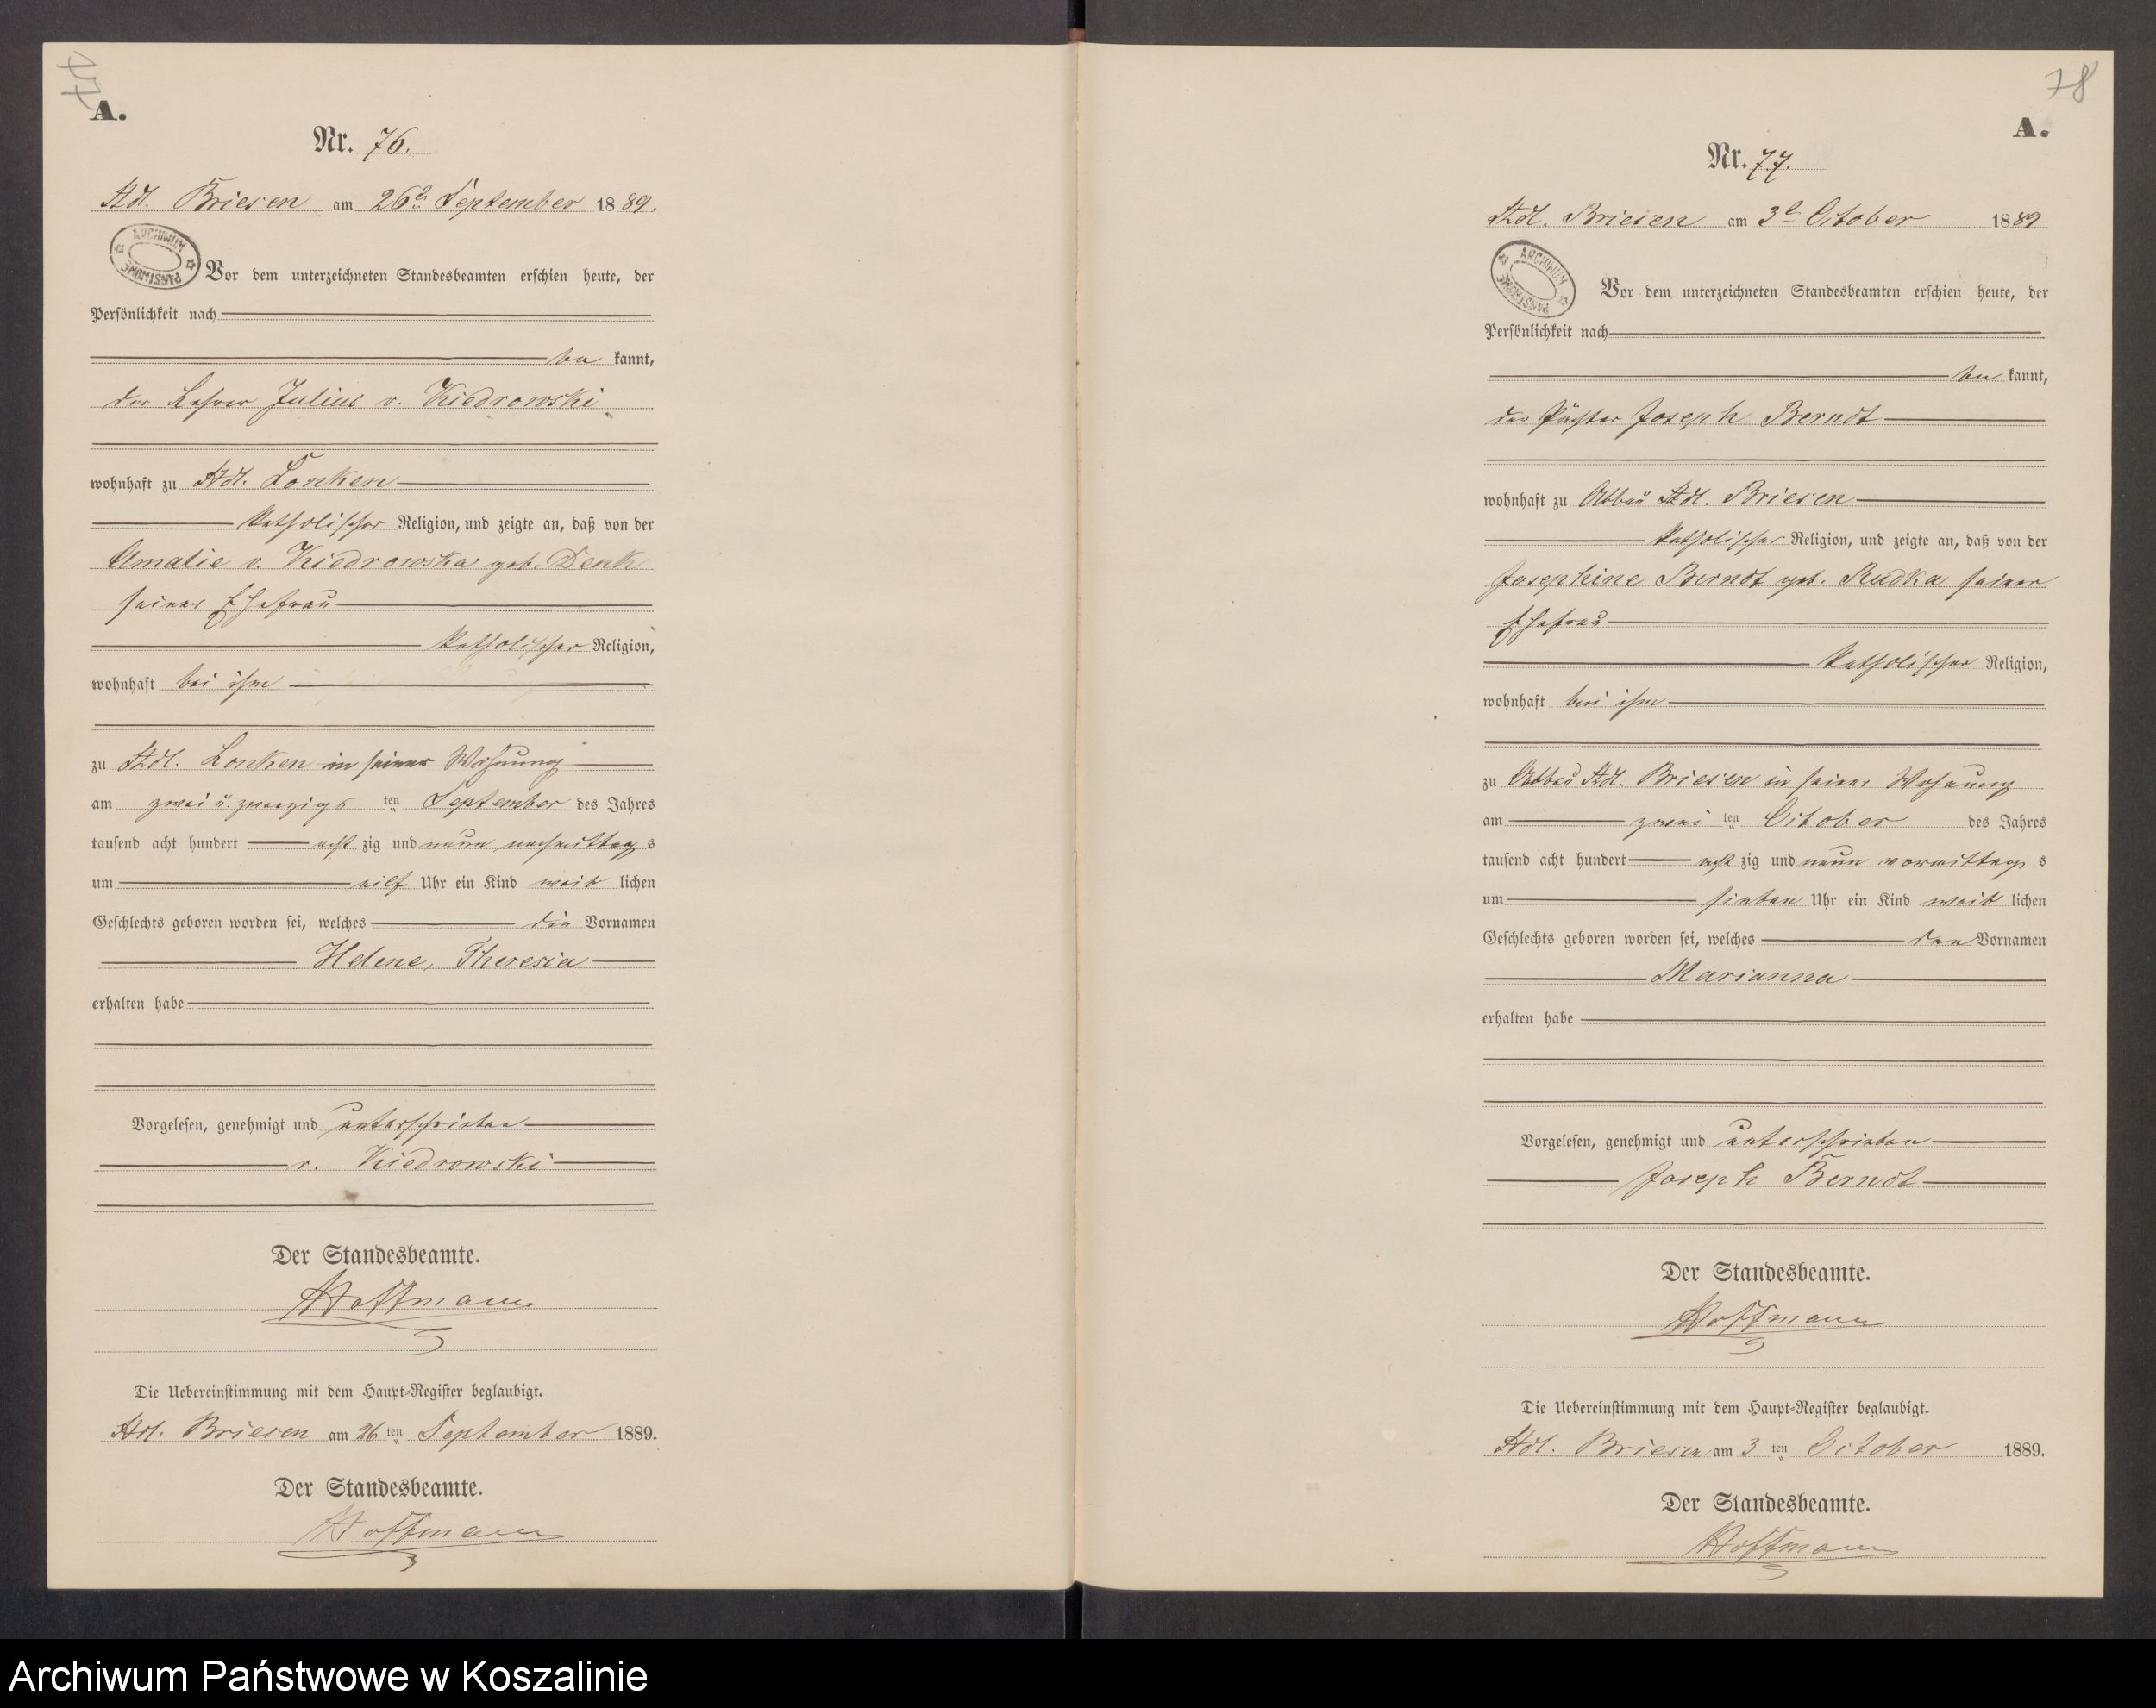 77
A.
Nr. 76.
Adl. Briesen am 26ten September 1889.
ARCHIWUM PAŃSTWOWE
Vor dem unterzeichneten Standesbeamten erschien heute, der
Persönlichkeit nach
be kannt,
der Lehrer Julius v. Kiedrowski
wohnhaft zu Adl. Lonken
katholischer Religion, und zeigte an, daß von der
Amalie v. Kiedrowska geb. Denk
seiner Ehefrau
katholischer Religion,
wohnhaft bei ihm
zu Adl. Lonken in seiner Wohnung
am zwei u. zwanzigs ten September des Jahres
tausend acht hundert acht zig und neun nachmittag s
um eilf Uhr ein Kind weib lichen
Geschlechts geboren worden sei, welches die Vornamen
Helene, Theresia
erhalten habe
Vorgelesen, genehmigt und unterschrieben
v. Kiedrowski
Der Standesbeamte.
Hoffmann
Die Uebereinstimmung mit dem Haupt-Register beglaubigt.
Adl. Briesen am 26 ten September 1889.
Der Standesbeamte.
Hoffmann
78
A.
Nr. 77.
Adl. Briesen am 3t October 1889
ARCHIWUM PAŃSTWOWE
Vor dem unterzeichneten Standesbeamten erschien heute, der
Persönlichkeit nach
be kannt,
der Pächter Joseph Berndt
wohnhaft zu Abbau Adl. Briesen
katholischer Religion, und zeigte an, daß von der
Josephine Berndt geb. Rudka seiner
Ehefrau
katholischer Religion,
wohnhaft bei ihm
zu Abbau Adl. Briesen in seiner Wohnung
am zwei ten October des Jahres
tausend acht hundert acht zig und neun vormittag s
um sieben Uhr ein Kind weib lichen
Geschlechts geboren worden sei, welches den Vornamen
Marianna
erhalten habe
Vorgelesen, genehmigt und unterschrieben
Joseph Berndt
Der Standesbeamte.
Hoffmann
Die Uebereinstimmung mit dem Haupt-Register beglaubigt.
Adl. Briesen am 3 ten October 1889.
Der Standesbeamte.
Hoffmann
Archiwum Państwowe w Koszalinie